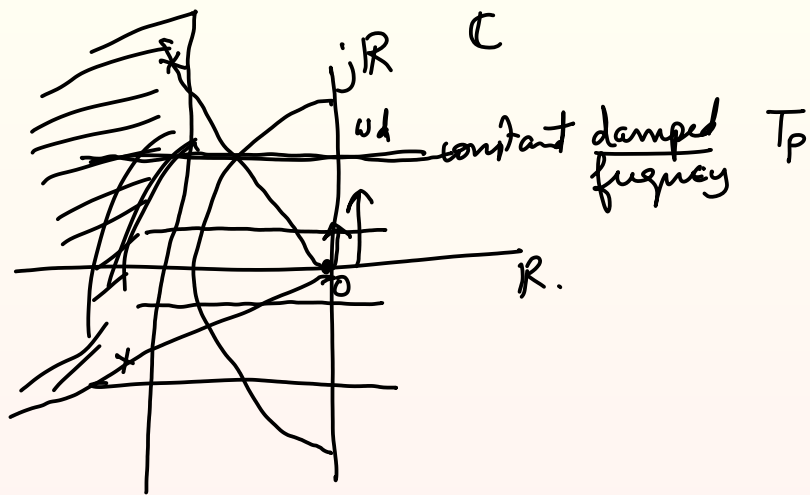 ℂ
jℝ
ωd
constant damped fuqncy Tp
0
ℝ.